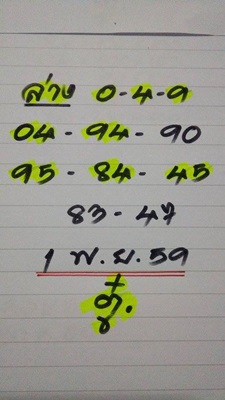 ล่าง 0-4-9
04 - 94 - 90
95 - 84 - 45
83 - 47
1 พ.ย. 59